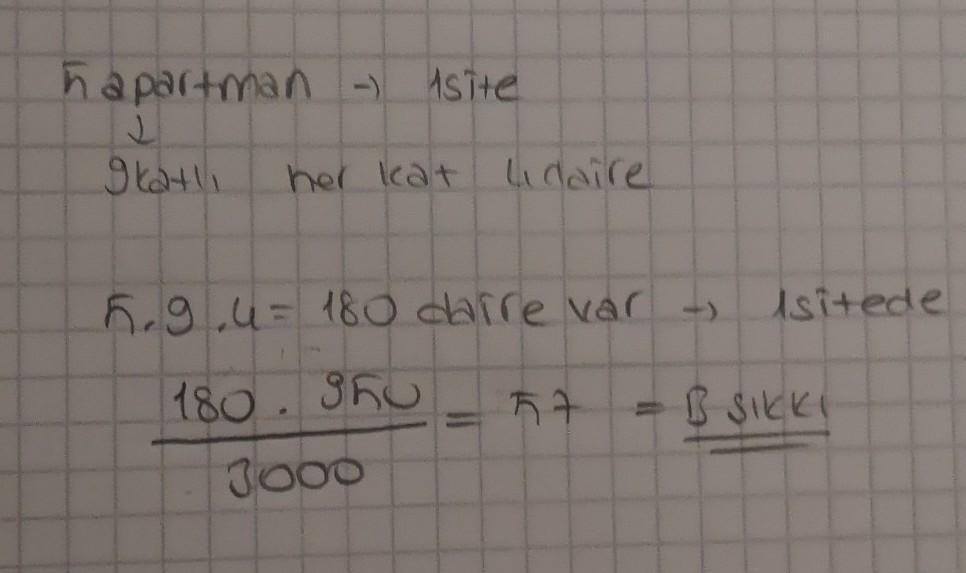 5 apartman → 1 site
↓
9 katlı her kat 4 daire
5.9.4 = 180 daire var → 1 sitede
180 . 950 / 3000 = 57 = B şıkkı